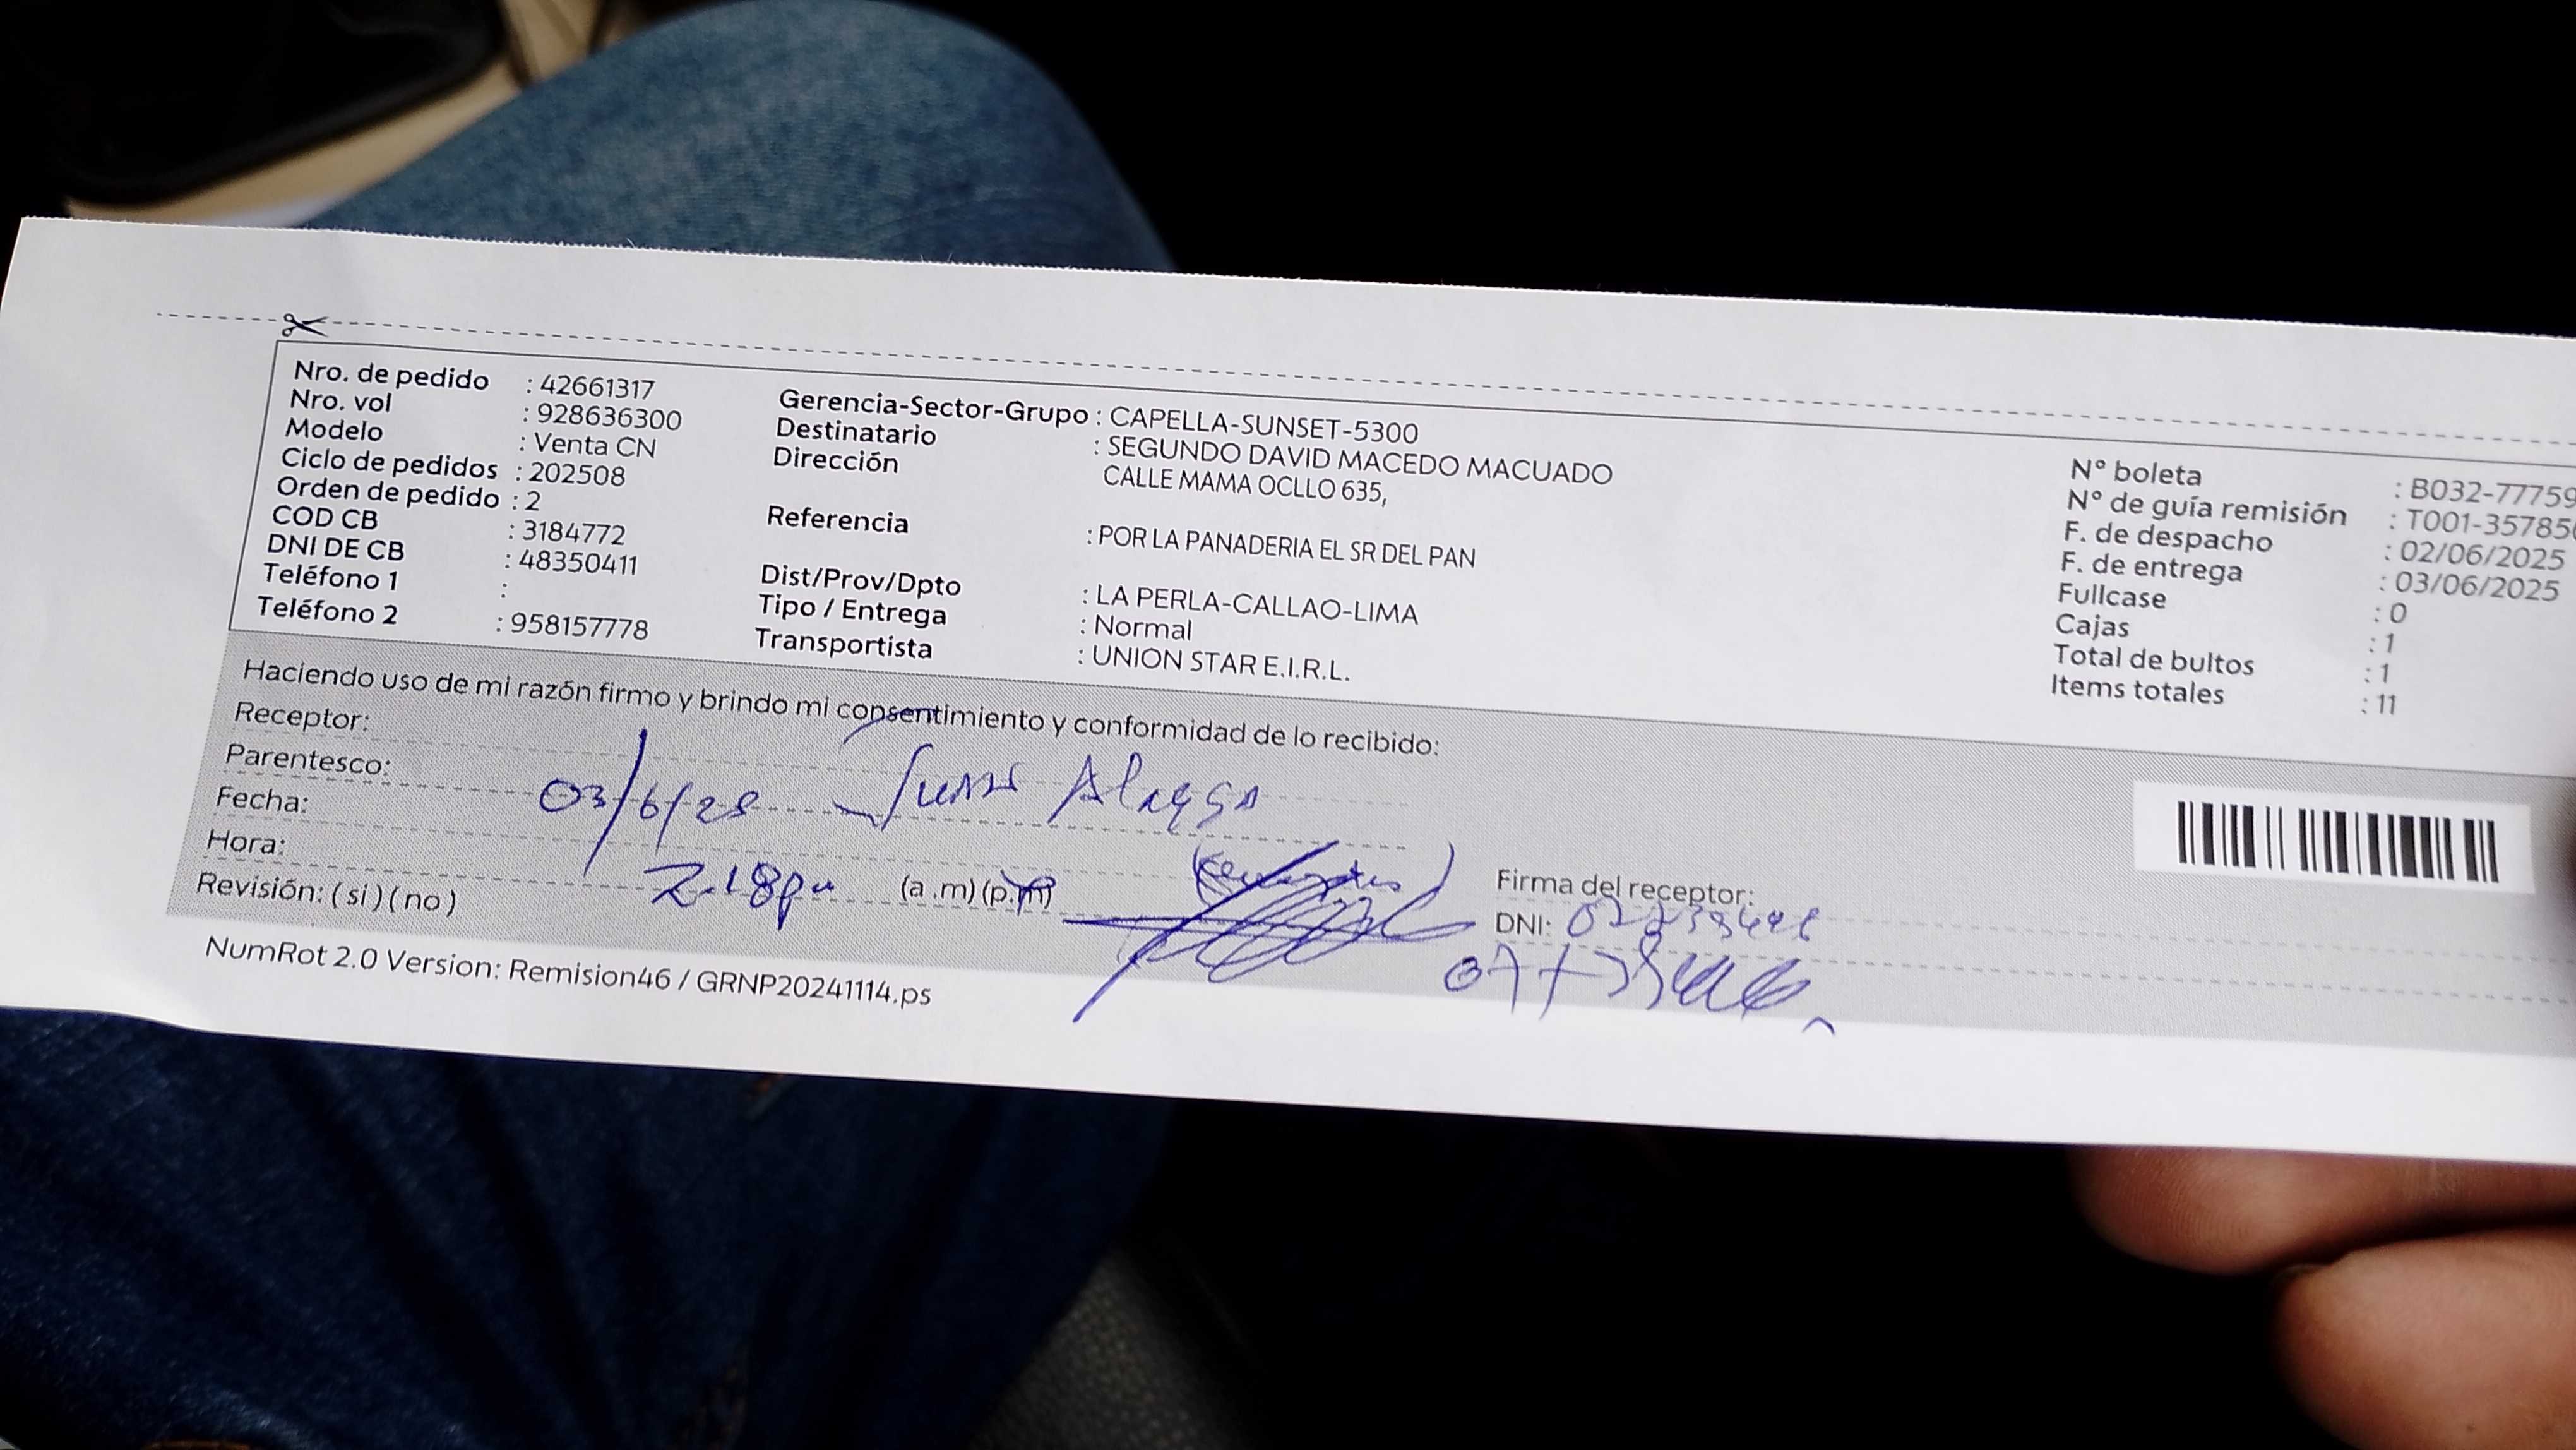 Nro. de pedido : 42661317
Nro. vol : 928636300
Modelo : Venta CN
Ciclo de pedidos : 202508
Orden de pedido : 2
COD CB : 3184772
DNI DE CB : 48350411
Teléfono 1 :
Teléfono 2 : 958157778
Gerencia-Sector-Grupo : CAPELLA-SUNSET-5300
Destinatario : SEGUNDO DAVID MACEDO MACUADO
Dirección CALLE MAMA OCLLO 635,
Referencia : POR LA PANADERIA EL SR DEL PAN
Dist/Prov/Dpto : LA PERLA-CALLAO-LIMA
Tipo / Entrega : Normal
Transportista : UNION STAR E.I.R.L.
N° boleta : B032-77759
N° de guía remisión : T001-35785
F. de despacho : 02/06/2025
F. de entrega : 03/06/2025
Fullcase : 0
Cajas : 1
Total de bultos : 1
Items totales : 11
Haciendo uso de mi razón firmo y brindo mi consentimiento y conformidad de lo recibido:
Receptor:
Parentesco:
Fecha: 03/6/25
Hora: 2.18pm (a.m) (p.m)
Revisión: ( si ) ( no )
Firma del receptor:
DNI:
NumRot 2.0 Version: Remision46 / GRNP20241114.ps